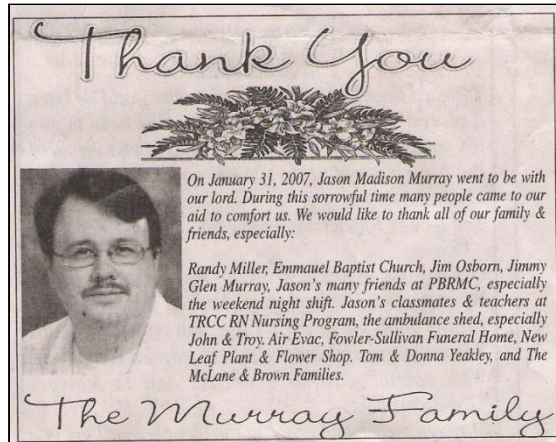 Thank You
On January 31, 2007, Jason Madison Murray went to be with
our lord. During this sorrowful time many people came to our
aid to comfort us. We would like to thank all of our family &
friends, especially:
Randy Miller, Emmauel Baptist Church, Jim Osborn, Jimmy
Glen Murray, Jason's many friends at PBRMC, especially
the weekend night shift. Jason's classmates & teachers at
TRCC RN Nursing Program, the ambulance shed, especially
John & Troy. Air Evac, Fowler-Sullivan Funeral Home, New
Leaf Plant & Flower Shop. Tom & Donna Yeakley, and The
McLane & Brown Families.
The Murray Family